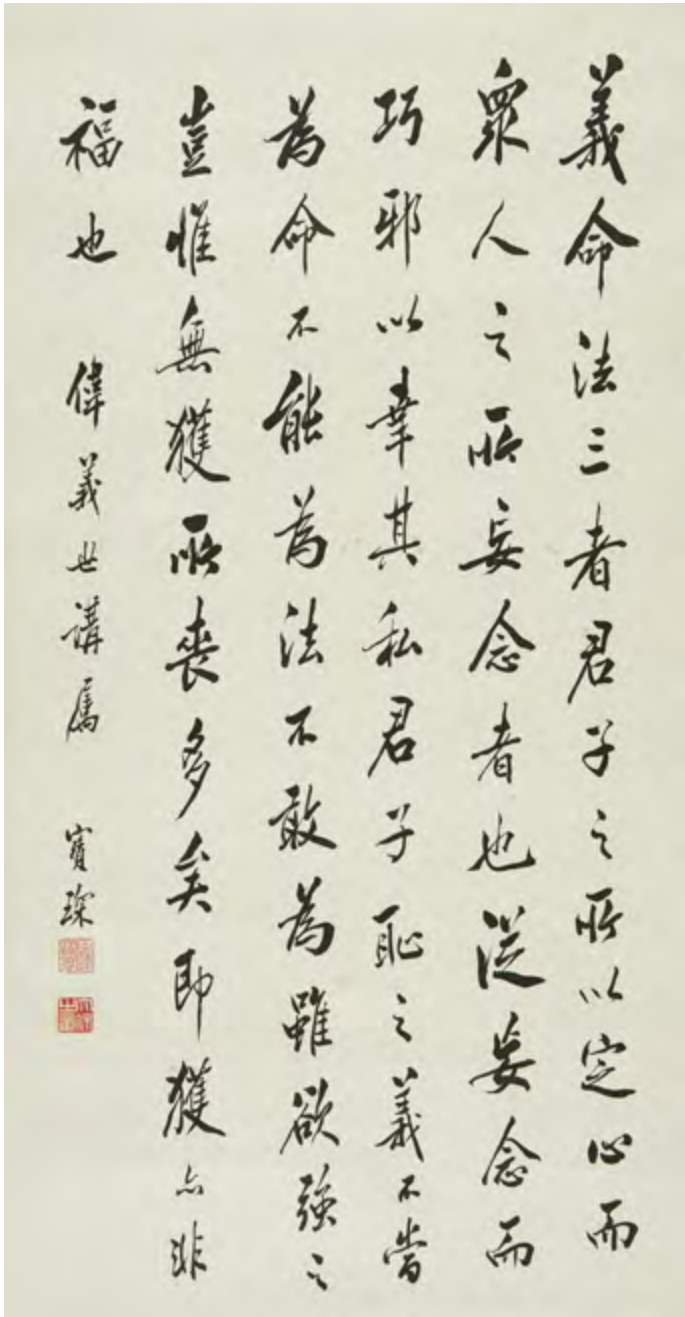 義命法三者君子之所以定心而
眾人之所妄念者也從妄念而
巧邪以幸其私君子恥之義不當
為命不能為法不敢為雖欲強之
豈惟無獲所喪多矣即獲亦非
福也
偉義世講屬
寶琛